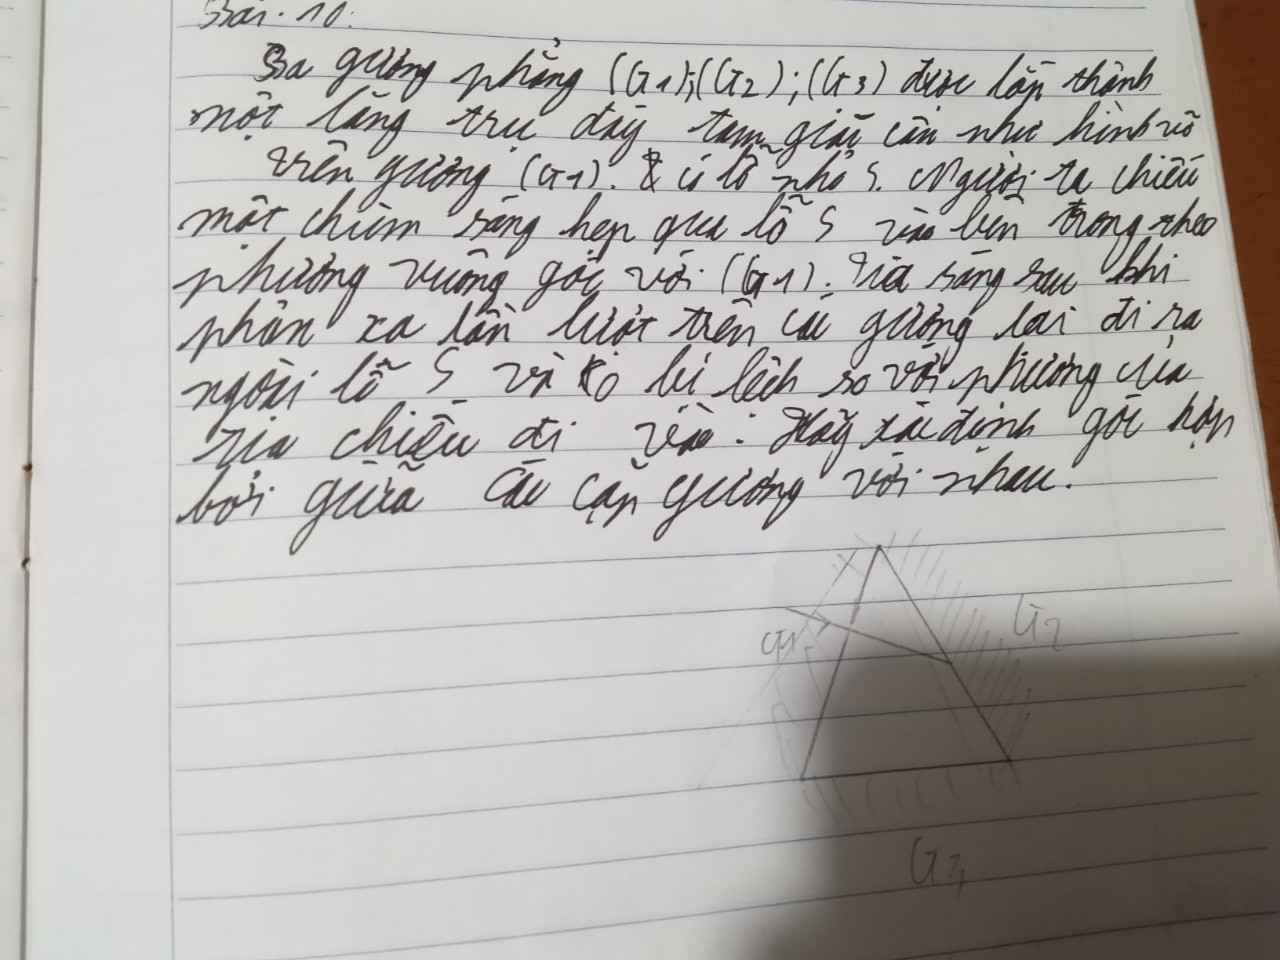 Bài. 10:
Ba gương phẳng (G1);(G2);(G3) được lắp thành
một lăng trụ đáy tam giác cân như hình vẽ
Trên gương (G1). có lỗ nhỏ S. Người ta chiếu
một chùm sáng hẹp qua lỗ S vào bên trong theo
phương vuông góc với (G1). Tia sáng sau khi
phản xạ lần lượt trên các gương lại đi ra
ngoài lỗ S và ko bị lệch so với phương của
tia chiếu đi vào. Hãy xác định góc hợp
bởi giữa các cặp gương với nhau.
G1
G2
G3